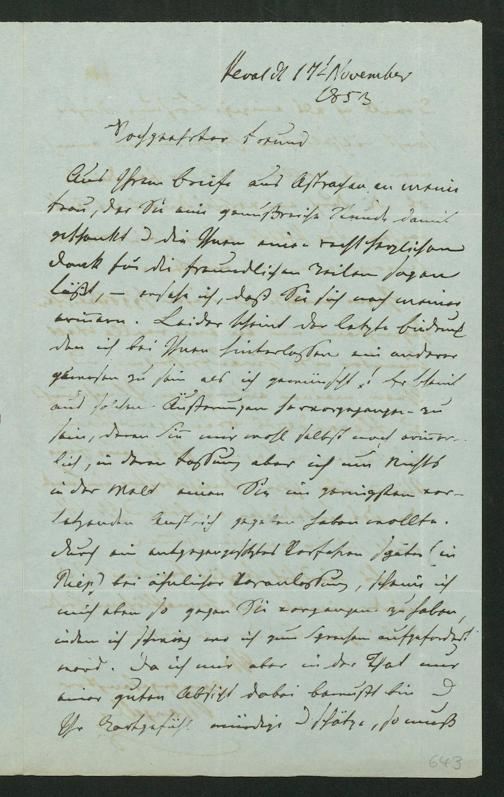 Reval d 17t November
1853
Hochgeehrter Freund
Aus Ihrem Briefe aus Astrachan an meine
Frau, der Sie eine genußreiche Stunde damit
geschenkt & die Ihnen einen recht herzlichen
Dank für die freundlichen Zeilen sagen
läßt – ersehe ich, daß Sie sich noch meiner
erinnern. Leider scheint der letzte Eindruck
den ich bei Ihnen hinterlassen ein anderer
gewesen zu sein als ich gewünscht! Er scheint
aus solchen Äußerungen hervorgegangen zu
sein, deren Sie mir wohl selbst noch erinner-
lich, in deren Fassung aber ich um Nichts
in der Welt einen Sie im geringsten ver-
letzenden Anstrich gegeben haben wollte.
Durch ein entgegengesetztes Verfahren später (in
) bei ähnlicher Veranlassung, scheine ich
mich eben so gegen Sie vergangen zu haben,
indem ich schwieg wo ich zum Sprechen aufgefordert
ward. Da ich mir aber in der That nur
einer guten Absicht dabei bewußt bin &
Ihr Zartgefühl würdige & schätze, so muß
643